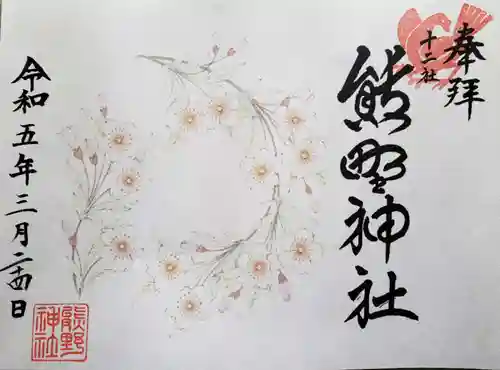 奉拝
十二社
熊野神社
令和五年三月二十四日
熊野
神社